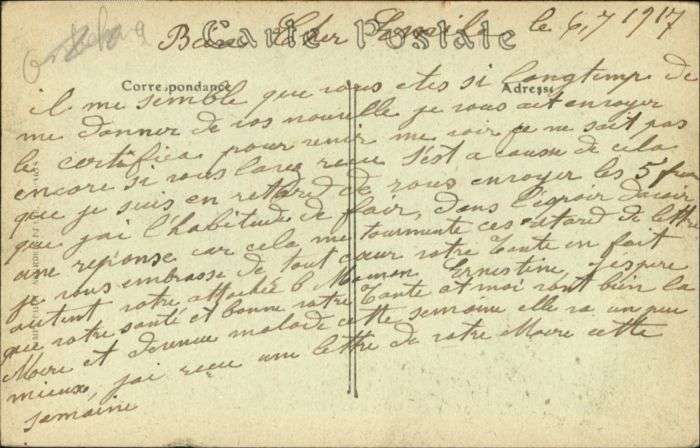 le 6,7 1917
Carte Postale
Correspondance
Adresse
il me semble que vous etes si longtemp de
me donner de vos nouvelle je vous ait envoyer
le certifica pour venir me voir je ne sait pas
encore si vous lavez recue s'est a cause de cela
que je suis en retard de vous envoyer les 5 franc
que jai l'habitude de fair, dans l'espoir davoir
une reponse car cela me tourmente ces retard de lettre
je vous embrasse de tout cœur votre Tante en fait
autant votre Maman Ernestine, J'espere
que votre santé et bonne votre Tante et moi vont bien la
Mere et devenue malade cette semaine elle va un peu
mieux, jai recue une lettre de votre Mere cette
semaine